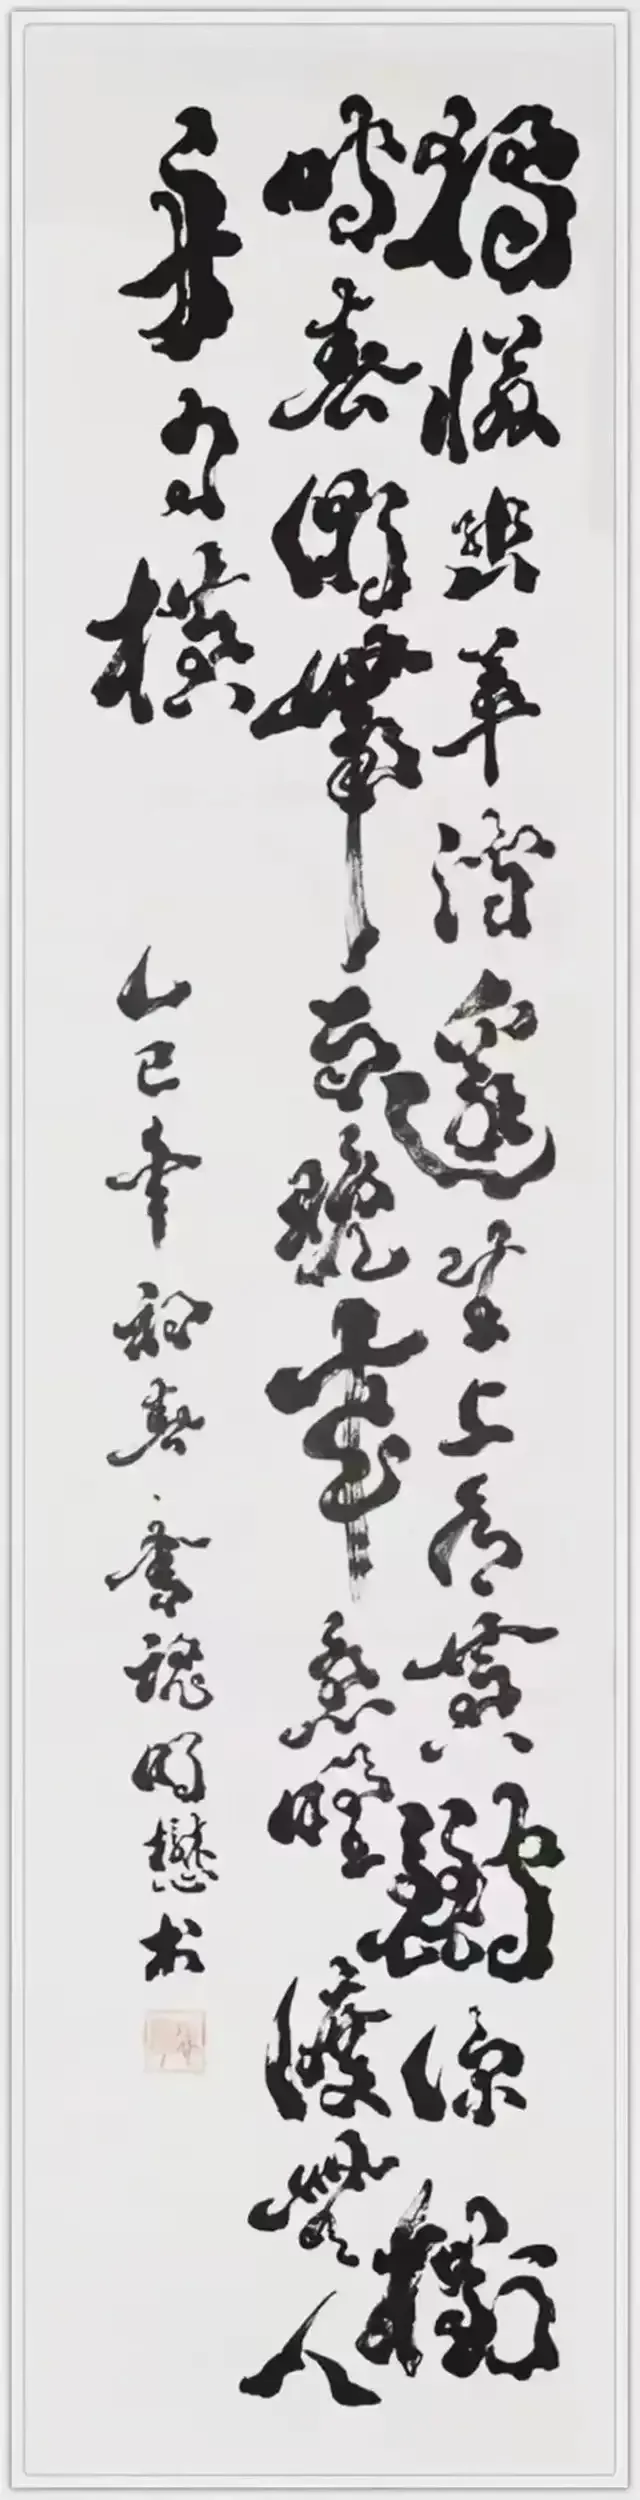 獨憐幽草澗邊生上有黃鸝深樹
鳴春潮帶雨晚來急野渡無人
舟自橫
乙巳年初春